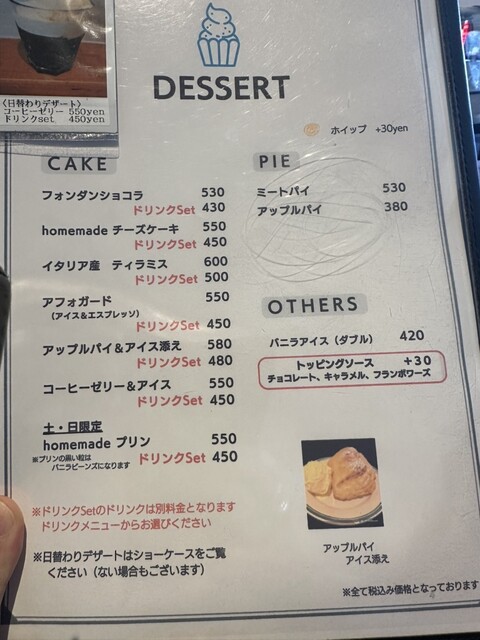 〈日替わりデザート〉
コーヒーゼリー 550yen
ドリンクset 450yen
DESSERT
ホイップ +30yen
CAKE
フォンダンショコラ 530
ドリンクSet 430
homemade チーズケーキ 550
ドリンクSet 450
イタリア産 ティラミス 600
ドリンクSet 500
アフォガード 550
(アイス&エスプレッソ)
ドリンクSet 450
アップルパイ&アイス添え 580
ドリンクSet 480
コーヒーゼリー&アイス 550
ドリンクSet 450
土・日限定
homemade プリン 550
※プリンの黒い粒は
バニラビーンズになります
ドリンクSet 450
※ドリンクSetのドリンクは別料金となります
ドリンクメニューからお選びください
※日替わりデザートはショーケースをご覧
ください(ない場合もございます)
PIE
ミートパイ 530
アップルパイ 380
OTHERS
バニラアイス(ダブル) 420
トッピングソース +30
チョコレート、キャラメル、フランボワーズ
アップルパイ
アイス添え
※全て税込み価格となっております